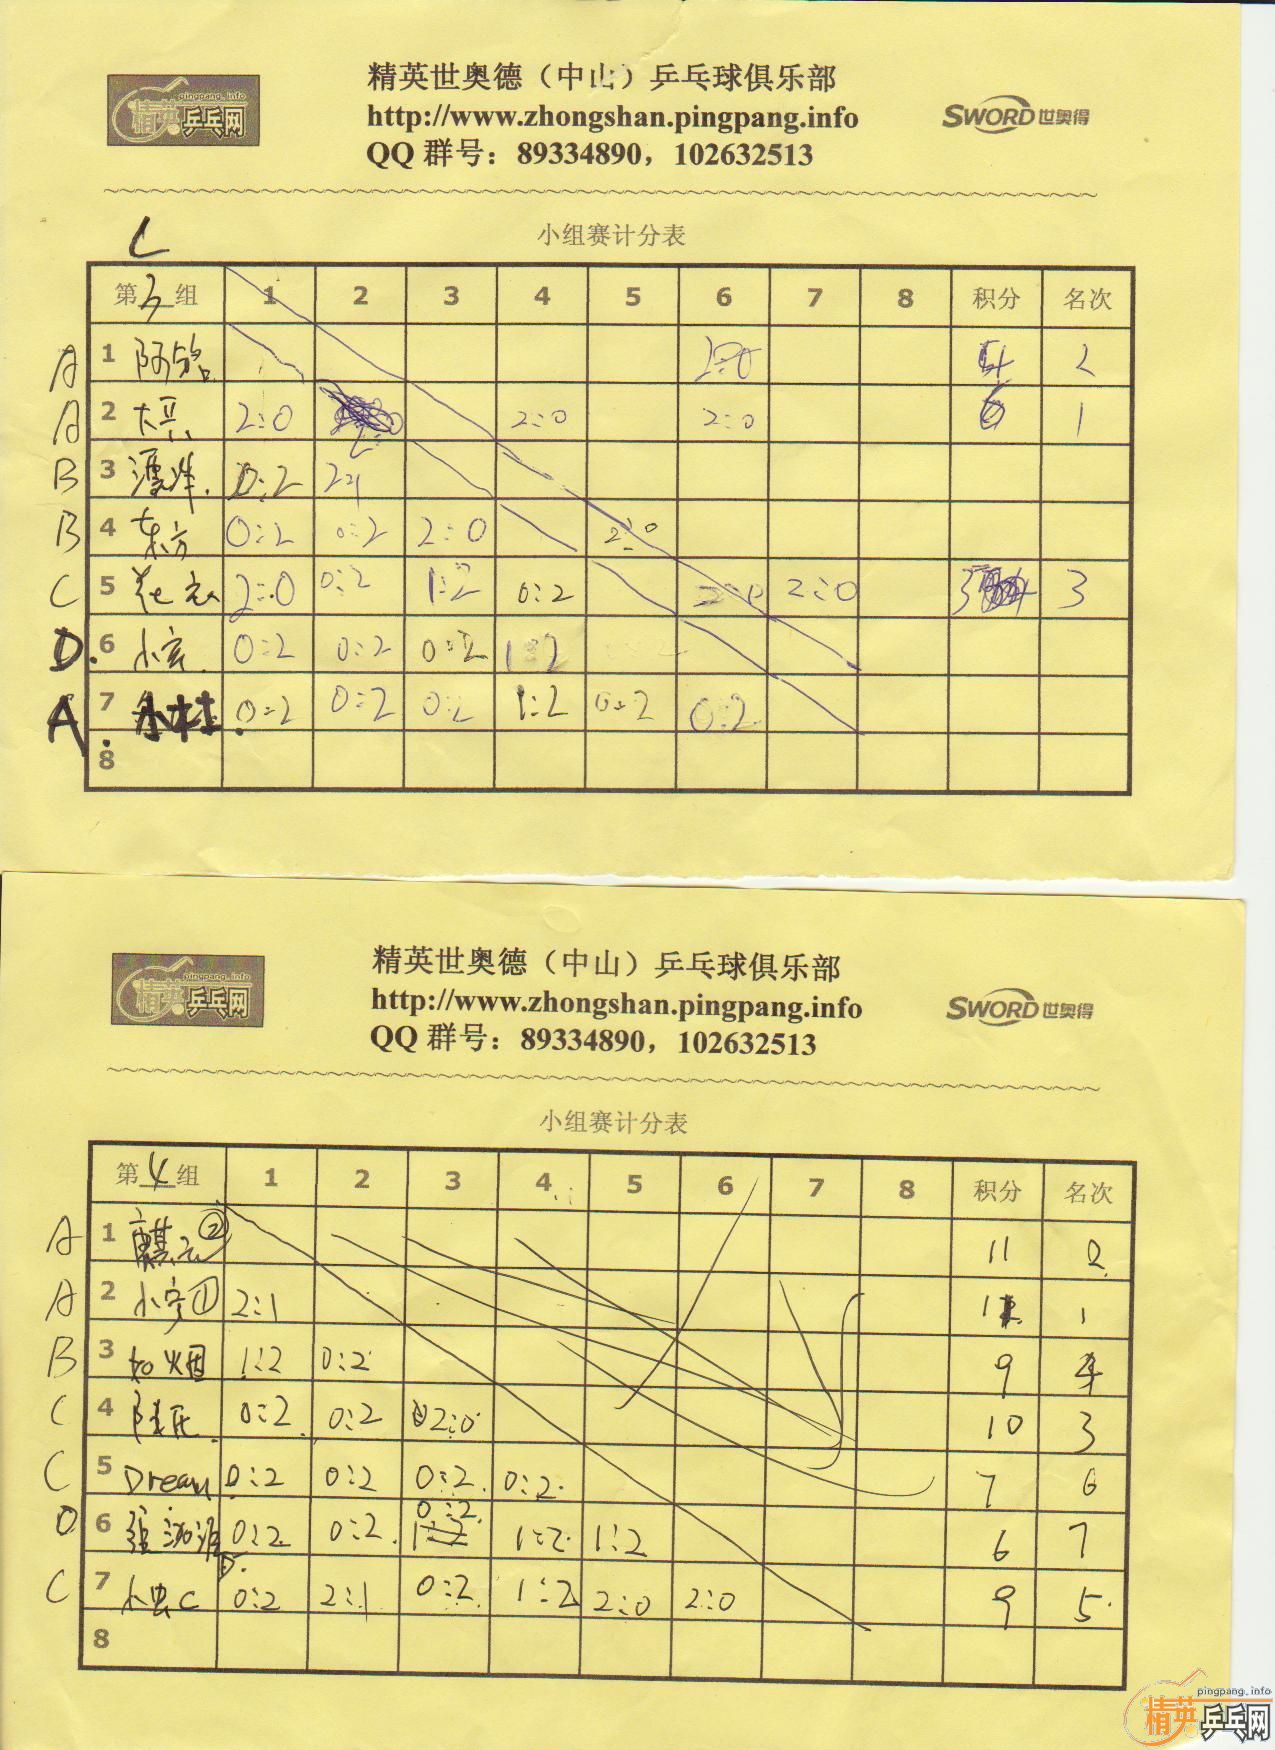 精英世奥德（中山）乒乓球俱乐部
pingpang.info
精英乒乓网
http://www.zhongshan.pingpang.info
SWORD世奥得
QQ 群号：89334890，102632513
小组赛计分表
第 3 组 1 2 3 4 5 6 7 8 积分 名次
A 1 2:0 4 2
A 2 2:0 2:0 2:0 6 1
B 3 0:2 2:1
B 4 东方 0:2 0:2 2:0 2:0
C 5 2:0 0:2 1:2 0:2 2:0 3 3
D. 6 0:2 0:2 0:2 1:2
A. 7 小林 0:2 0:2 0:2 1:2 0:2 0:2
8
精英世奥德（中山）乒乓球俱乐部
pingpang.info
精英乒乓网
http://www.zhongshan.pingpang.info
SWORD世奥得
QQ 群号：89334890，102632513
小组赛计分表
第 4 组 1 2 3 4 5 6 7 8 积分 名次
A 1 ② 11 2
A 2 小宁① 2:1 1
B 3 如烟 1:2 0:2 9 4
C 4 0:2 0:2 2:0 10 3
C 5 Dream 0:2 0:2 0:2 0:2 7 6
D 6 0:2 0:2 0:2 1:2 1:2 6 7
C 7 小虫C 0:2 2:1 0:2 1:2 2:0 2:0 9 5
8
pingpang.info
精英乒乓网